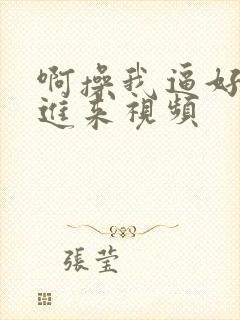 啊操我逼好
進来視頻
張莹